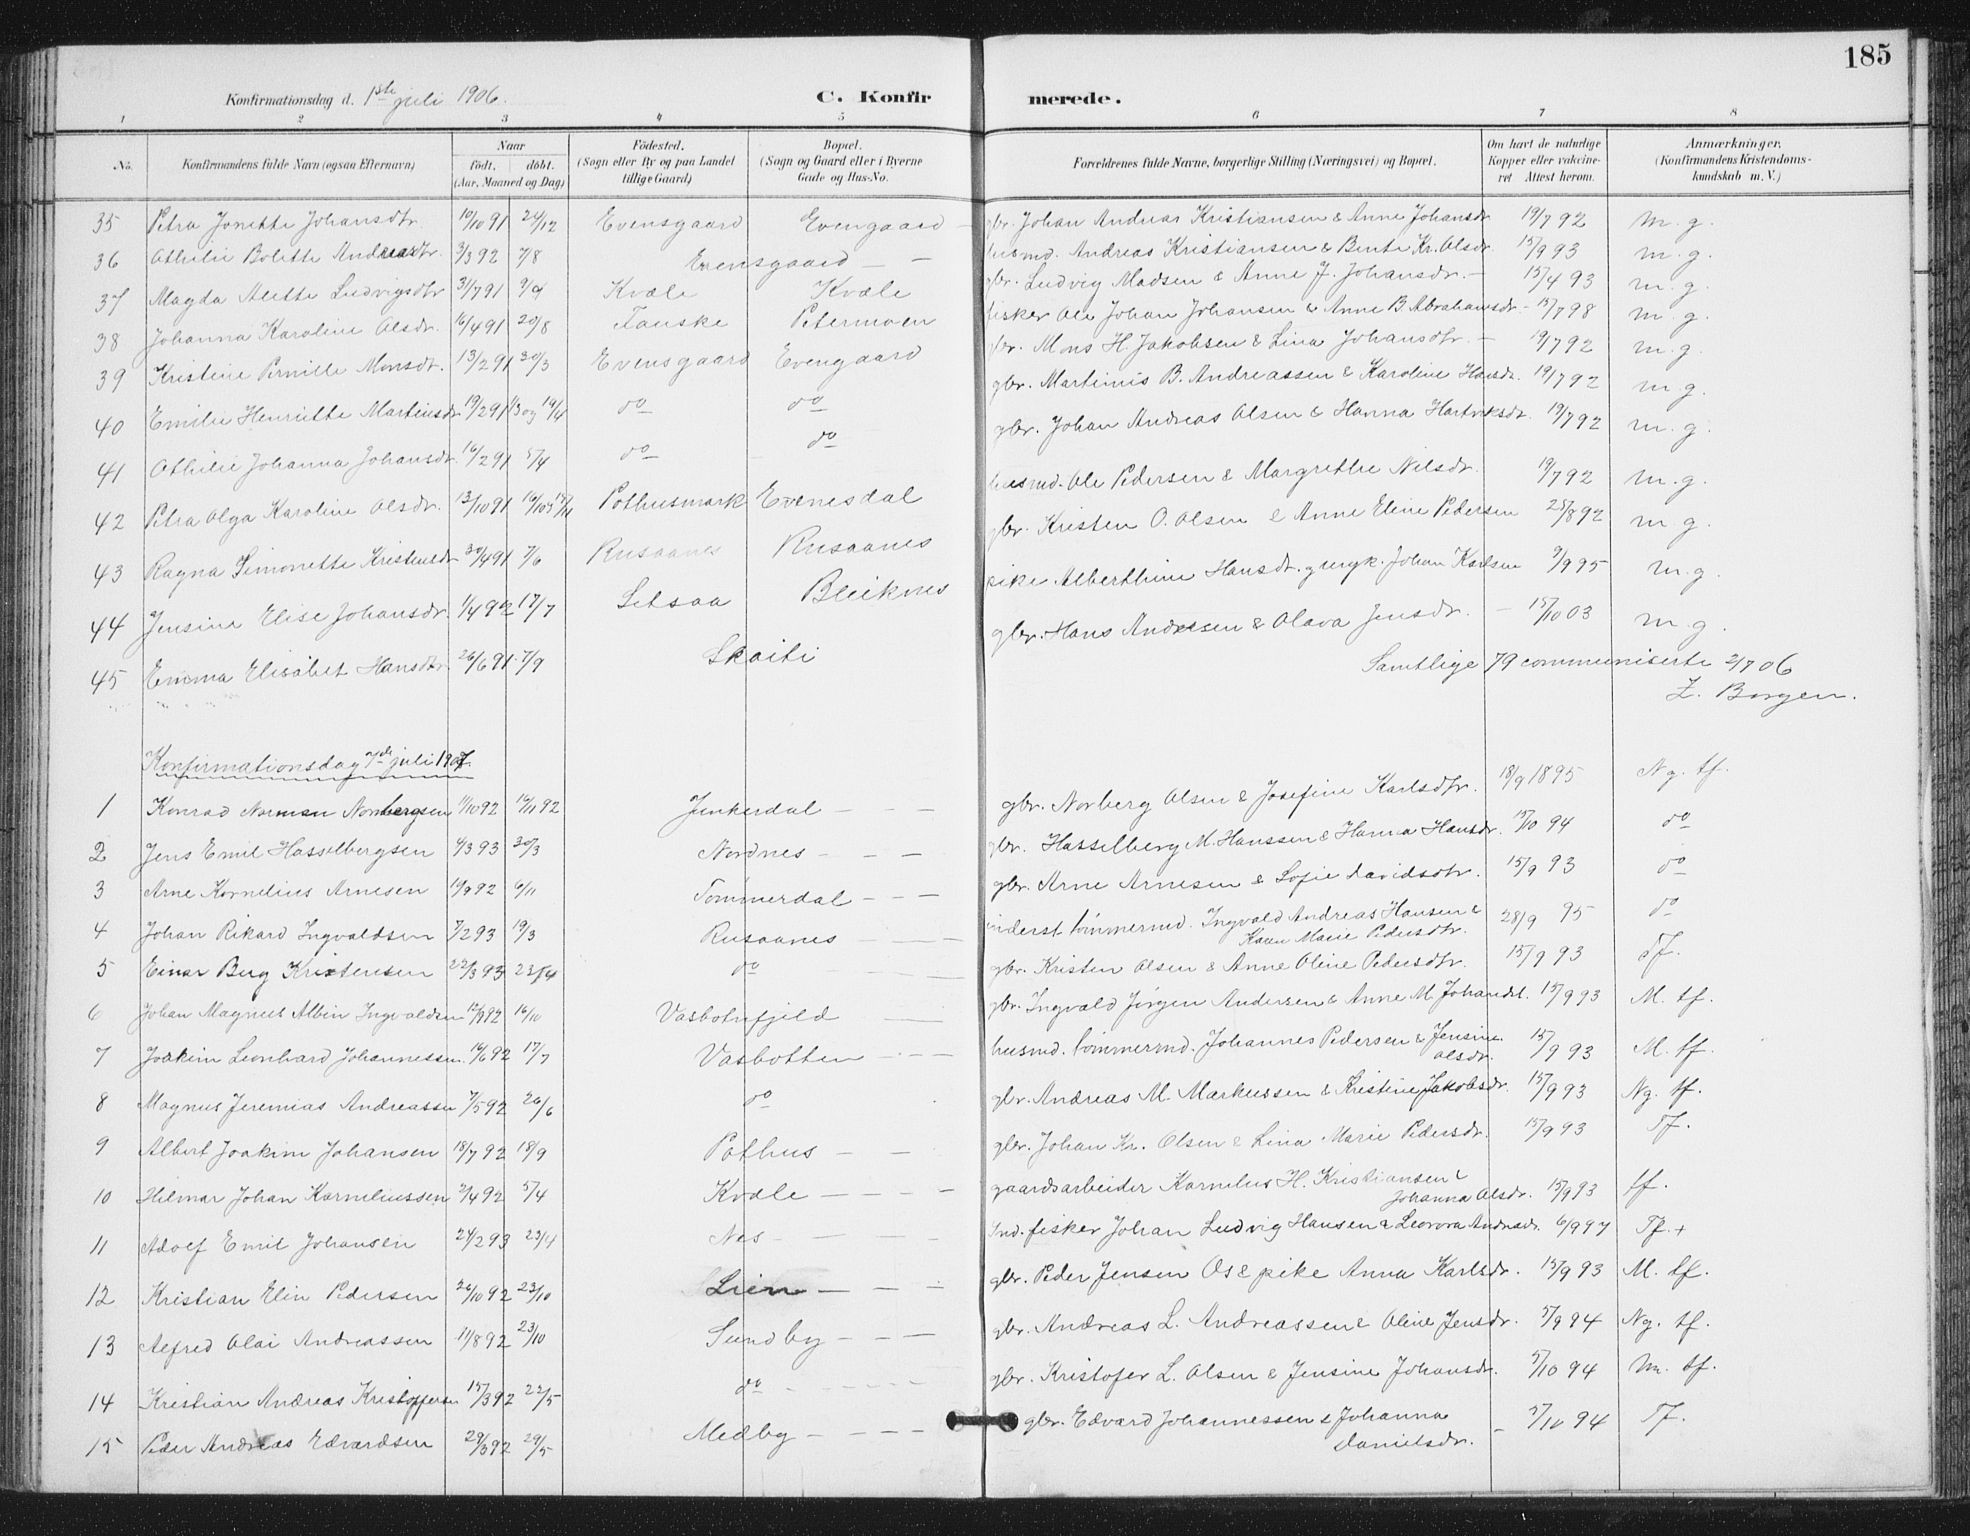 185
Konfirmationsdag d. 1ste juli 1906. C. Konfirmerede.
1 2 3 4 5 6 7 8
No. Konfirmandens fulde Navn (ogsaa Efternavn) Naar födt, döbt. (Aar, Maaned og Dag) Födested. (Sogn eller By og paa Landet tillige Gaard) Bopæl. (Sogn og Gaard eller i Byerne Gade og Hus-No. Forældrenes fulde Navne, borgerlige Stilling (Næringsvei) og Bopæl. Om havt de naturlige Kopper eller vakcineret Attest herom. Anmærkninger. (Konfirmandens Kristendomskundskab m. V.)
35 Petra Jonette Johansdtr 10/10 91 26/12 Evensgaard Evengaard gbr. Johan Andreas Kristiansen & Anne Johansdr 19/7 92 m. g.
36 Othilie Bolette Andreasdtr. 3/3 92 7/8 Evensgaard — — husmd. Andreas Kristiansen & Bente Kr. Olsdr. 15/9 93 m. g.
37 Magda Alette Ludvigsdtr 31/7 91 9/9 Kvale Kvale gbr. Ludvig Madsen & Anne J. Johansdr. — 15/4 93 m. g.
38 Johanna Karoline Olsdr. 16/4 91 20/8 Fauske Petermoen fisker Ole Johan Johansen & Anne B. Abrahamsdr. 15/7 98 m. g.
39 Kristine Pernille Monsdr. 13/2 91 30/3 Evensgaard Evengaard gbr. Mons H. Jakobsen & Lina Johansdtr. — 19/7 92 m. g.
40 Emilie Henriette Martinsdr 19/2 91 1/3 og 19/4 do do gbr. Martinus B. Andreassen & Karoline Hansdr. 19/7 92 m. g.
41 Othilie Johanna Johansdr. 16/2 91 5/4 do do gbr. Johan Andreas Olsen & Hanna Hartviksdr. 19/7 92 m. g.
42 Petra Olga Karoline Olsdr. 13/10 91 Pothusmark Evenesdal husmd. Ole Pedersen & Margrethe Nilsdr. 19/7 92 m. g.
43 Ragna Simonette Kristensdr 30/4 91 7/6 Rusaanes Rusaanes gbr. Kristen O. Olsen & Anne Eline Pedersen 25/8 92 m g.
44 Jensine Elise Johansdr. 1/4 92 17/7 Setsaa Bleiknes pike Alberthine Hansdr. g ungk. Johan Karlsen 9/9 95 m. g.
45 Emma Elisabet Hansdtr 26/6 91 7/9 Skaiti gbr. Hans Andresen & Olava Jensdr. — 15/10 03 m. g.
Samtlige 79 communiserte 2/7 06
Z. Borgen.
Konfirmationsdag 7de juli 1907.
1 Konrad Norman Norbergsen 1/10 92 12/11 92 Junkerdal — — — gbr. Norberg Olsen & Josefine Karlsdtr. 18/9 1895 Ng. tf.
2 Jens Emil Hasselbergsen 4/3 93 30/3 Nordnes — — — gbr. Hasselberg M. Hanssen & Hanna Hansdr. 15/10 94 do
3 Arne Kornelius Arnesen 19/9 92 6/11 Tømmerdal — — — gbr. Arne Arnesen & Sofie Davidsdtr. 15/9 93 do
4 Johan Rikard Ingvaldsen 7/2 93 19/3 Rusaanes — — — inderst tømmermd. Ingvald Andreas Hansen &
Karen Marie Pedersdtr. 28/9 95 do
5 Einar Berg Kristensen 22/3 93 23/4 do gbr. Kristen Olsen & Anne Oline Pedersdtr. 15/9 93 tf.
6 Johan Magnus Albin Ingvaldsen 16/10 Vasbotnfjeld — gbr. Ingvald Jørgen Andersen & Anne M. Johansdt. 15/9 93 M. tf.
7 Joakim Leonhard Johannessen. 16/6 92 17/7 Vasbotten — — — husmd. tømmermd. Johannes Pedersen & Jensine
Olsdr. 15/9 93 M. tf.
8 Magnus Jeremias Andreassen 7/5 92 26/6 do gbr. Andreas M. Markussen & Kristine Jakobsdr. 15/9 93 Ng. tf.
9 Albert Joakim Johansen 18/7 92 18/9 Pothus — — — gbr. Johan Kr. Olsen & Lina Marie Pedersdr. 15/9 93 Tf.
10 Hilmar Johan Korneliussen 2/4 92 5/4 Kvale — — — gaardsarbeider Kornelius H. Kristiansen &
Johanna Olsdr. 15/9 93 tf.
11 Adolf Emil Johansen 24/2 93 23/4 Nes — — — Ind. fisker Johan Ludvig Hansen & Leonora Andrsdr. 6/9 97 Tf. +
12 Kristian Elin Pedersen 26/10 92 23/10 Lien — — — gbr. Peder Jensen Os & pike Anna Karlsdr. 15/9 93 M. tf.
13 Alfred Olai Andreassen 11/8 92 23/10 Sundby — — — gbr. Andreas L. Andreassen & Oline Jensdr. 5/9 94 Ng. tf.
14 Kristian Andreas Kristoffersen 15/3 92 22/5 do — — — gbr. Kristofer L. Olsen & Jensine Johansdr. 5/10 94 m. tf.
15 Peder Andreas Edvardsen 29/3 92 29/5 Medby — — — gbr. Edvard Johannessen & Johanna
Danielsdr. — 5/10 94 Tf.